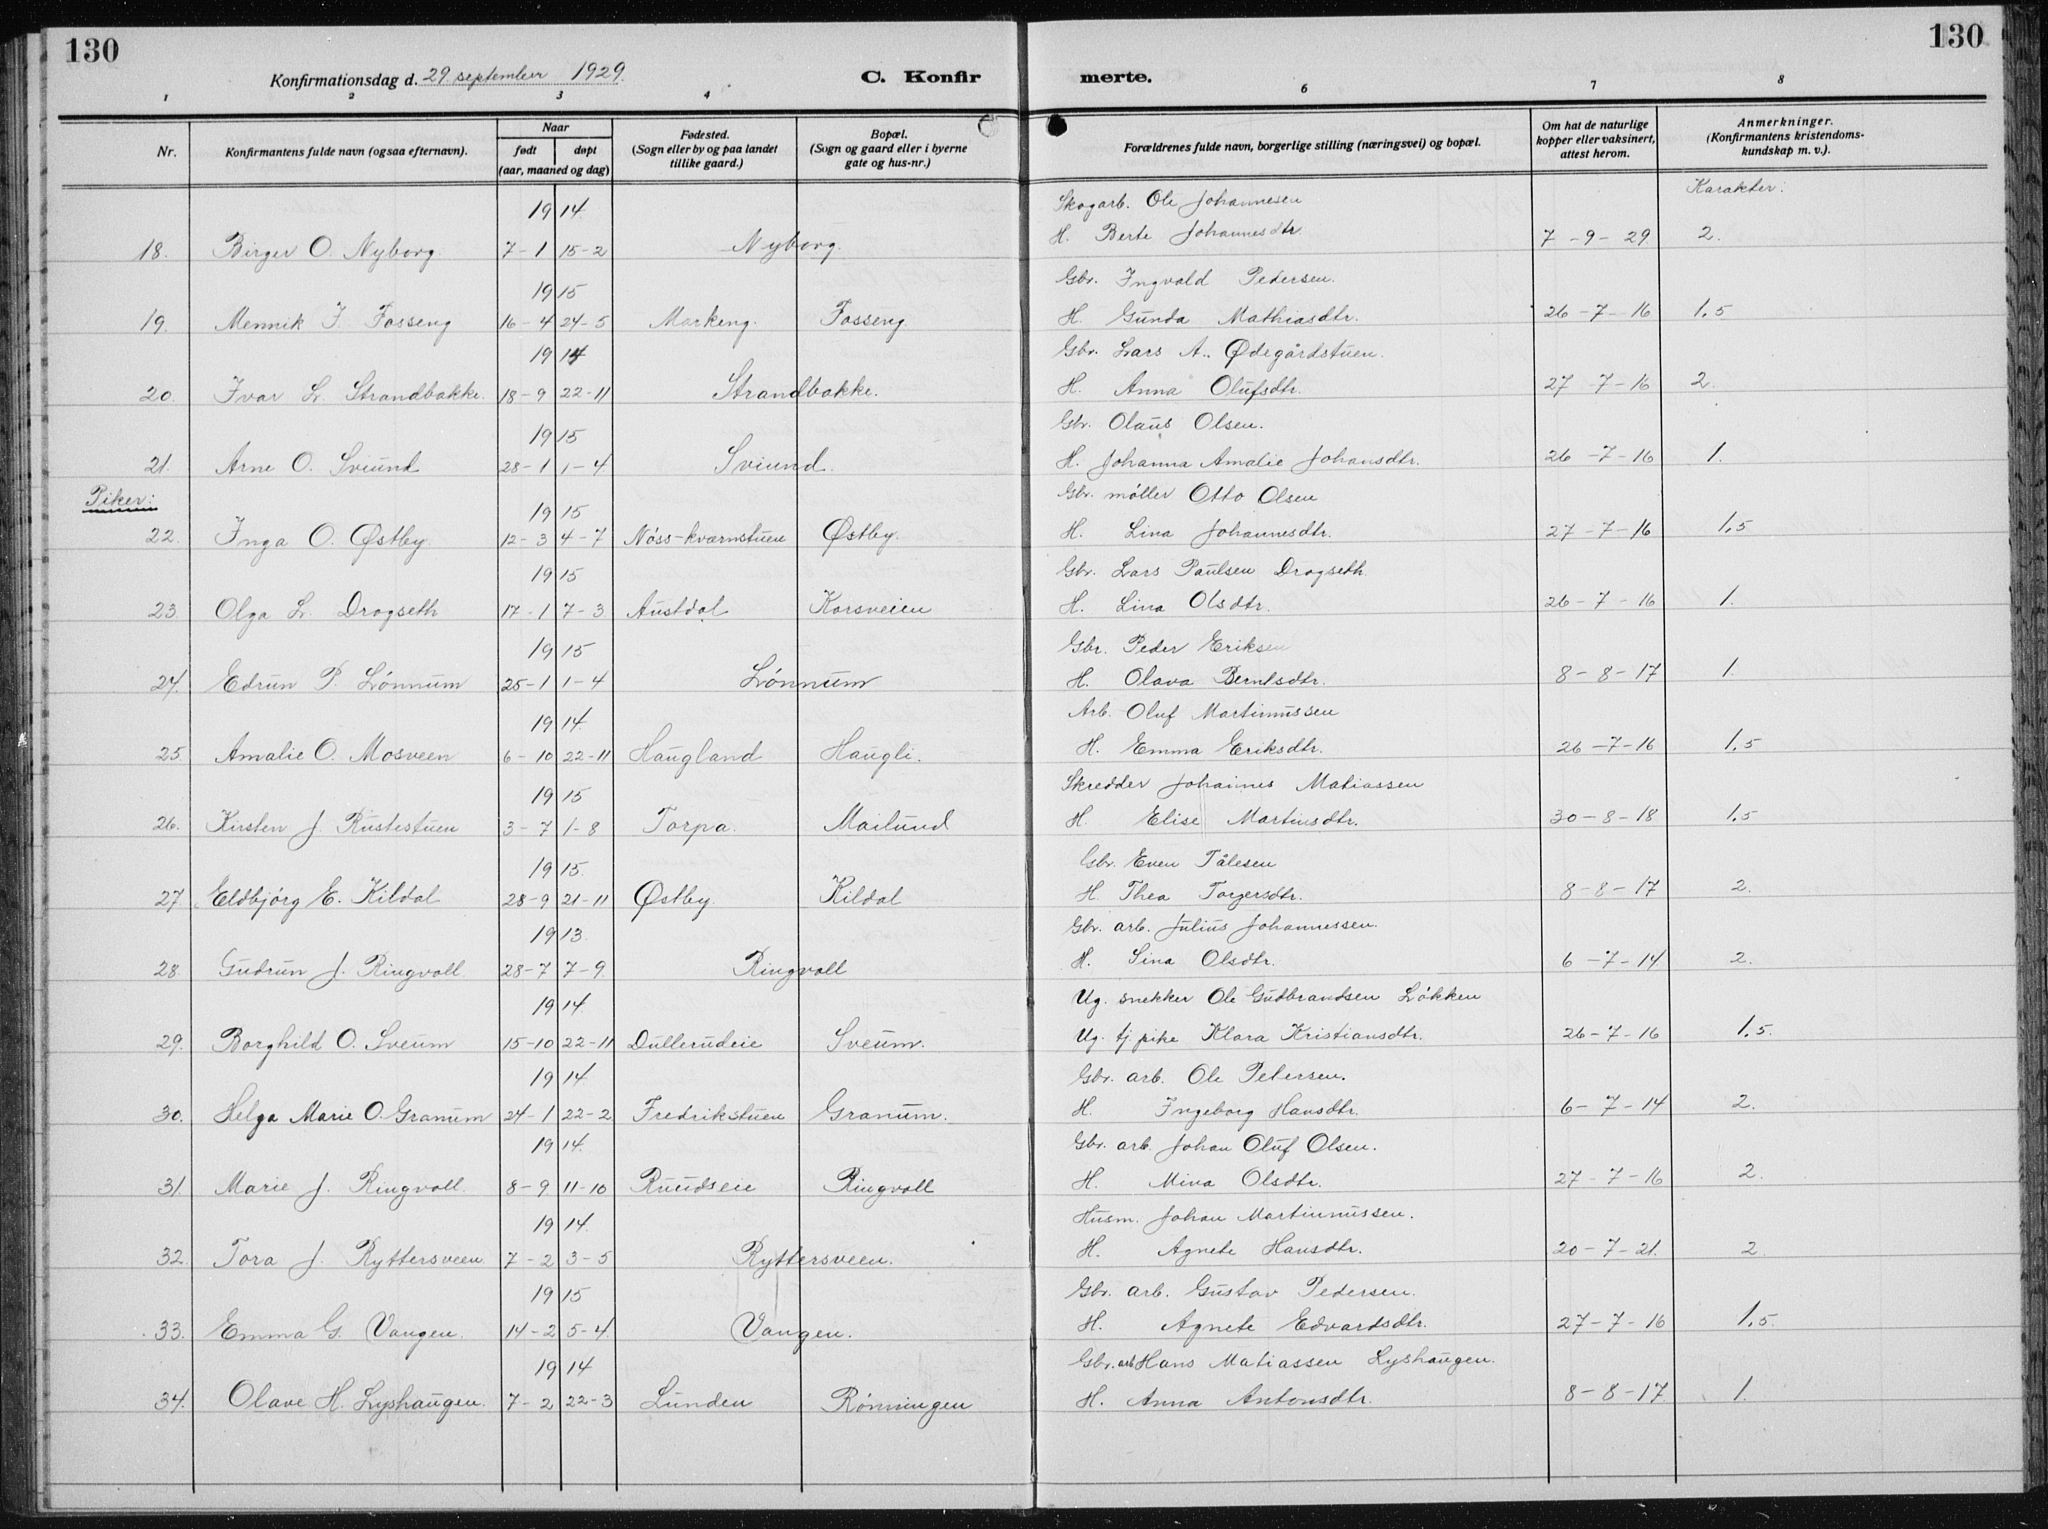 130
130
Konfirmationsdag d. 29 september 1929.
C. Konfir
merte.
1 2 3 4 6 7 8
Nr.
Konfirmantens fulde navn (ogsaa efternavn).
Naar
født døpt
(aar, maaned og dag)
Fødested.
(Sogn eller by og paa landet
tillike gaard.)
Bopæl.
(Sogn og gaard eller i byerne
gate og hus-nr.)
Forældrenes fulde navn, borgerlige stilling (næringsvei) og bopæl.
Om hat de naturlige
kopper eller vaksinert,
attest herom.
Anmerkninger.
(Konfirmantens kristendoms-
kundskap m. v.).
Karakter:
1914 Skogarb. Ole Johannesen
18. Birger O. Nyborg. 7-1 15-2 Nyborg. H. Berte Johannesdtr. 7-9-29 2.
1915 Gbr. Ingvald Pedersen.
19. Mennik I. Fosseng 16-4 24-5 Markeng. Fosseng H. Gunda Mathiasdtr. 26-7-16 1.5
1914 Gbr. Lars A. Ødegårdstuen.
20. Ivar L. Strandbakke. 18-9 22-11 Strandbakke. H. Anna Olufsdtr. 27 7-16 2.
1915 Gbr. Olaus Olsen.
21. Arne O. Sviund 28-1 1-4 Sviund. H. Johanna Amalie Johansdtr. 26-7-16 1.
Piker:
1915 Gbr. møller Otto Olsen
22. Inga O. Østby. 12-3 4-7 Nøss-kværnstuen Østby. H. Lina Johannesdtr. 27-7-16 1.5
1915 Gbr. Lars Paulsen Drogseth
23. Olga L. Drogseth 17-1 7-3 Austdal Korsveien H. Lina Olsdtr. 26-7-16 1.
1915 Gbr. Peder Eriksen
24. Edrun P. Lønnum 25-1 1-4 Lønnum H. Olava Berntsdtr. 8-8-17 1.
1914. Arb. Oluf Martinussen
25. Amalie O. Mosveen 6-10 22-11 Haugland Haugli. H. Emma Eriksdtr. 26-7-16 1.5
1915 Skredder Johannes Matiassen
26. Kirsten J. Rustestuen 3-7 1-8 Torpa. Mailund H. Elise Martinsdtr. 30-8-18 1.5
1915. Gbr. Even Tålesen
27 Eldbjørg E. Kildal 28-9 21-11 Østby. Kildal H. Thea Torgersdtr. 8-8-17 2.
1913. Gbr. arb. Julius Johannessen.
28. Gudrun J. Ringvoll 28-7 7-9. Ringvoll H. Sina Olsdtr. 6-7-14 2.
1914. Ug. snekker Ole Gudbrandsen Løkken
29. Borghild O. Sveum 15-10 22-11 Dullerudeie Sveum. Ug. tj. pike Klara Kristiansdtr. 26-7-16 1.5.
1914 Gbr. arb. Ole Petersen.
30. Helga Marie O. Granum 24-1 22-2 Fredrikstuen Granum. H. Ingeborg Hansdtr. 6-7-14 2.
1914. Gbr. arb. Johan Oluf Olsen.
31. Marie J. Ringvoll. 8-9 11-10 Ruudseie Ringvoll H. Mina Olsdtr. 27-7-16 2.
1914. Husm. Johan Martinnussen.
32. Tora J. Ryttersveen 7-2 3-5 Ryttersveen. H. Agnete Hansdtr. 20-7-21. 2.
1915 Gbr. arb. Gustav Pedersen.
33. Emma G. Vangen. 14-2 5-4. Vangen. H. Agnete Edvardsdtr. 27-7-16 1.5.
1914 Gbr. arb Hans Matiassen Lyshaugen.
34. Olave H. Lyshaugen. 7-2 22-3 Lunden Rønningen H. Anna Antonsdtr. 8-8-17. 1.